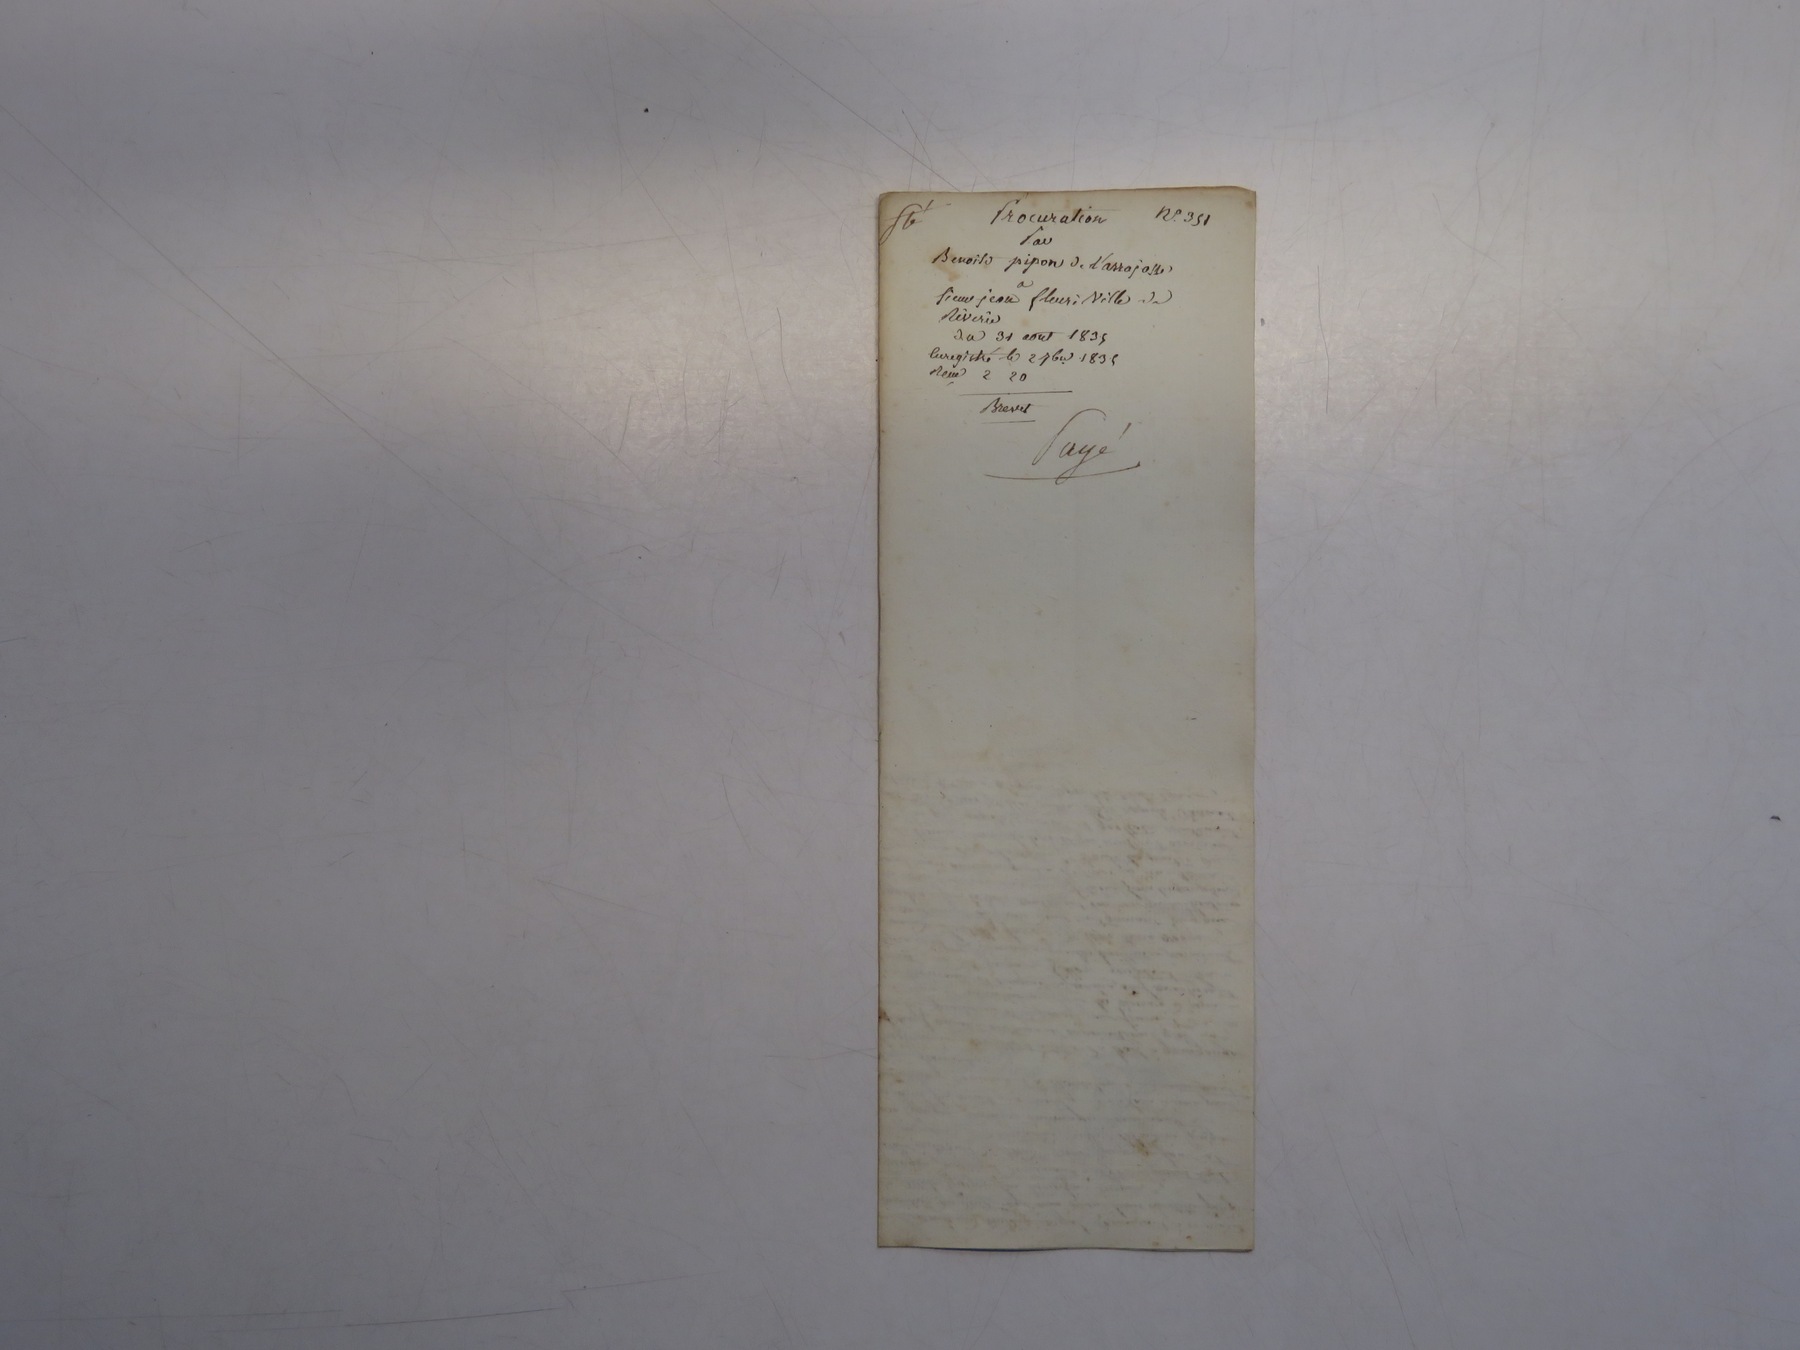 Procuration N.° 351
Par
Benoite pipon de Larrajasse
à
Sieur jean fleuri Ville de
Riverie
Du 31 aout 1835
Enregistré le 2 7bre 1835
Reçu 2 20
Brevet
Payé